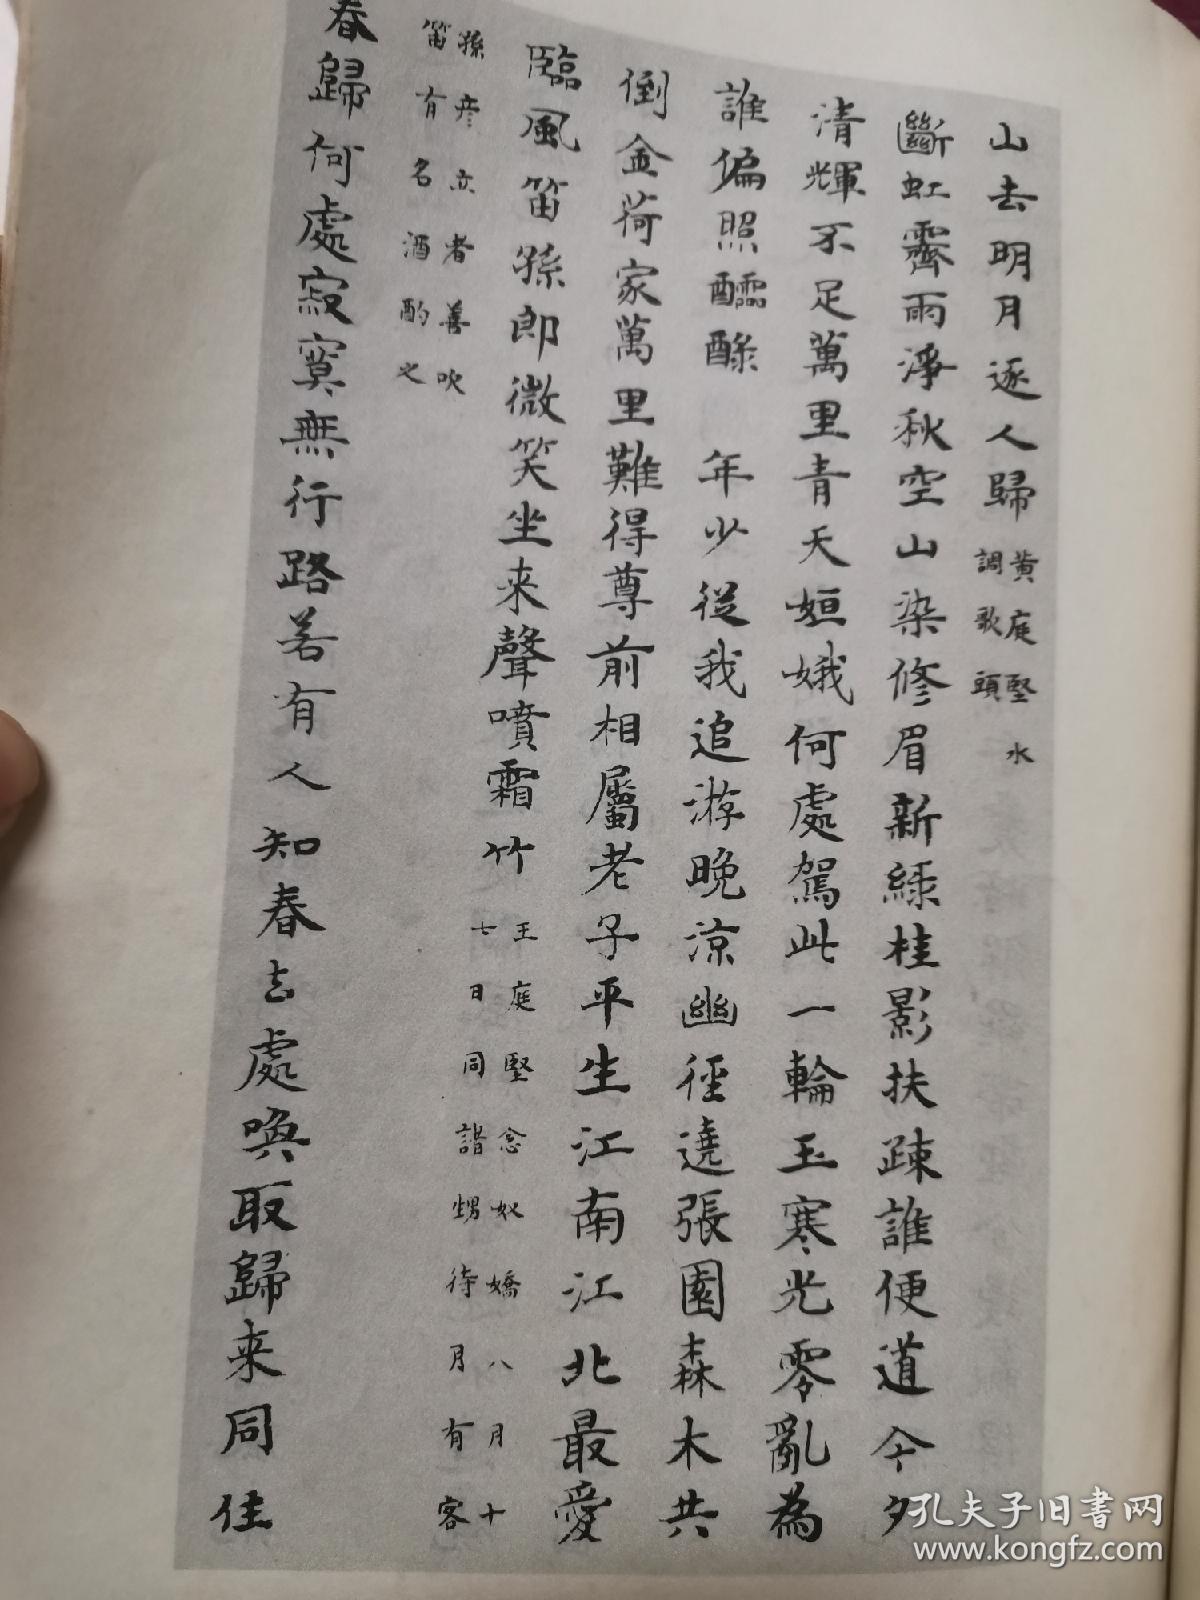 山去明月逐人歸
黃庭堅 水
調歌頭
斷虹霽雨淨秋空山染修眉新綠桂影扶疎誰便道今夕
清輝不足萬里青天姮娥何處駕此一輪玉寒光零亂為
誰偏照醽醁 年少從我追游晚涼幽徑遶張園森木共
倒金荷家萬里難得尊前相屬老子平生江南江北最愛
臨風笛孫郎微笑坐来聲噴霜竹
王庭堅念奴嬌八月十
七日同諧甥待月有客
孫彦立者善吹
笛有名酒酌之
春歸何處寂寞無行路若有人知春去處喚取歸来同住
孔夫子旧书网
www.kongfz.com